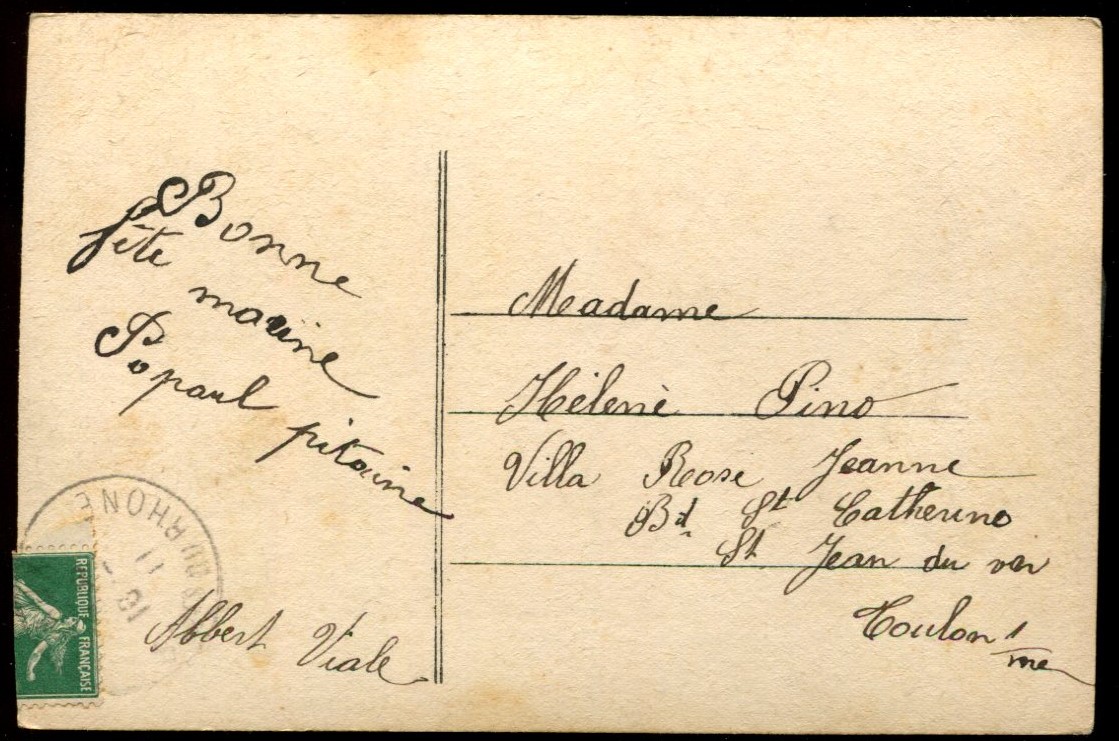 Bonne
fête
maríne
Popaul pitaine
Albert Viale
Madame
Hélène Pino
Villa Rose Jeanne
Bd St Catherine
St Jean du var
Toulon s/me
REPUBLIQUE FRANÇAISE
DU RHONE
11
18